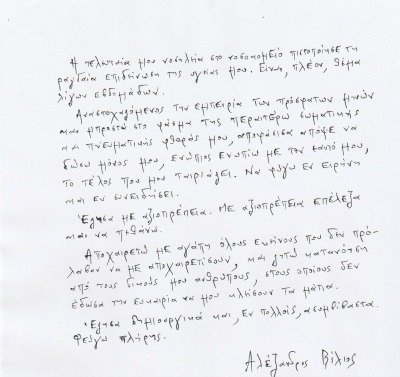 Η τελευταία μου νοσηλεία στο νοσοκομείο πιστοποίησε τη
ραγδαία επιδείνωση της υγείας μου. Είναι, πλέον, θέμα
λίγων εβδομάδων.
Αναστοχαζόμενος την εμπειρία των πρόσφατων μηνών
και μπροστά στο φάσμα της περαιτέρω σωματικής
και πνευματικής φθοράς μου, αποφάσισα απόψε να
δώσω μόνος μου, ενώπιος ενωπίω με τον εαυτό μου,
το τέλος που μου ταιριάζει. Να φύγω εν ειρήνη
και εν συνειδήσει.
Έζησα με αξιοπρέπεια. Με αξιοπρέπεια επέλεξα
και να πεθάνω.
Αποχαιρετώ με αγάπη όλους εκείνους που δεν πρό-
λαβαν να με αποχαιρετίσουν, και ζητώ κατανόηση
από τους δικούς μου ανθρώπους, στους οποίους δεν
έδωσα την ευκαιρία να μου κλείσουν τα μάτια.
Έζησα δημιουργικά και, εν πολλοίς, ασυμβίβαστα.
Φεύγω πλήρης.
Αλέξανδρος Βέλιος